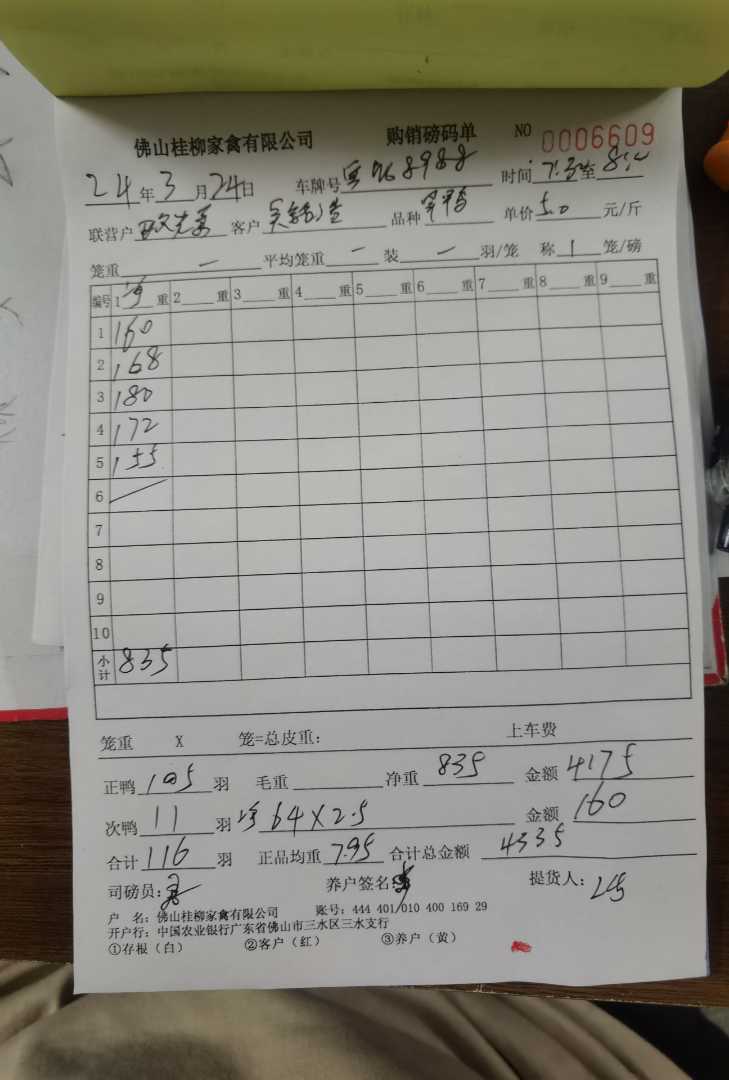 佛山桂柳家禽有限公司 购销磅码单 NO 0006609
24年3月24日 车牌号 8988 时间 7.3至8
联营户 客户 品种 单价5.0元/斤
笼重 — 平均笼重 — 装 — 羽/笼 称 1 笼/磅
编号 1 净 重 2 重 3 重 4 重 5 重 6 重 7 重 8 重 9 重
1 160
2 168
3 180
4 172
5 155
6
7
8
9
10
小计 835
笼重 X 笼=总皮重: 上车费
正鸭 105 羽 毛重 净重 835 金额 4175
次鸭 11 羽 净 64×2.5 金额 160
合计 116 羽 正品均重 7.95 合计总金额 4335
司磅员: 养户签名: 提货人:
户 名: 佛山桂柳家禽有限公司 账号: 444 401/010 400 169 29
开户行: 中国农业银行广东省佛山市三水区三水支行
①存根(白) ②客户(红) ③养户(黄)